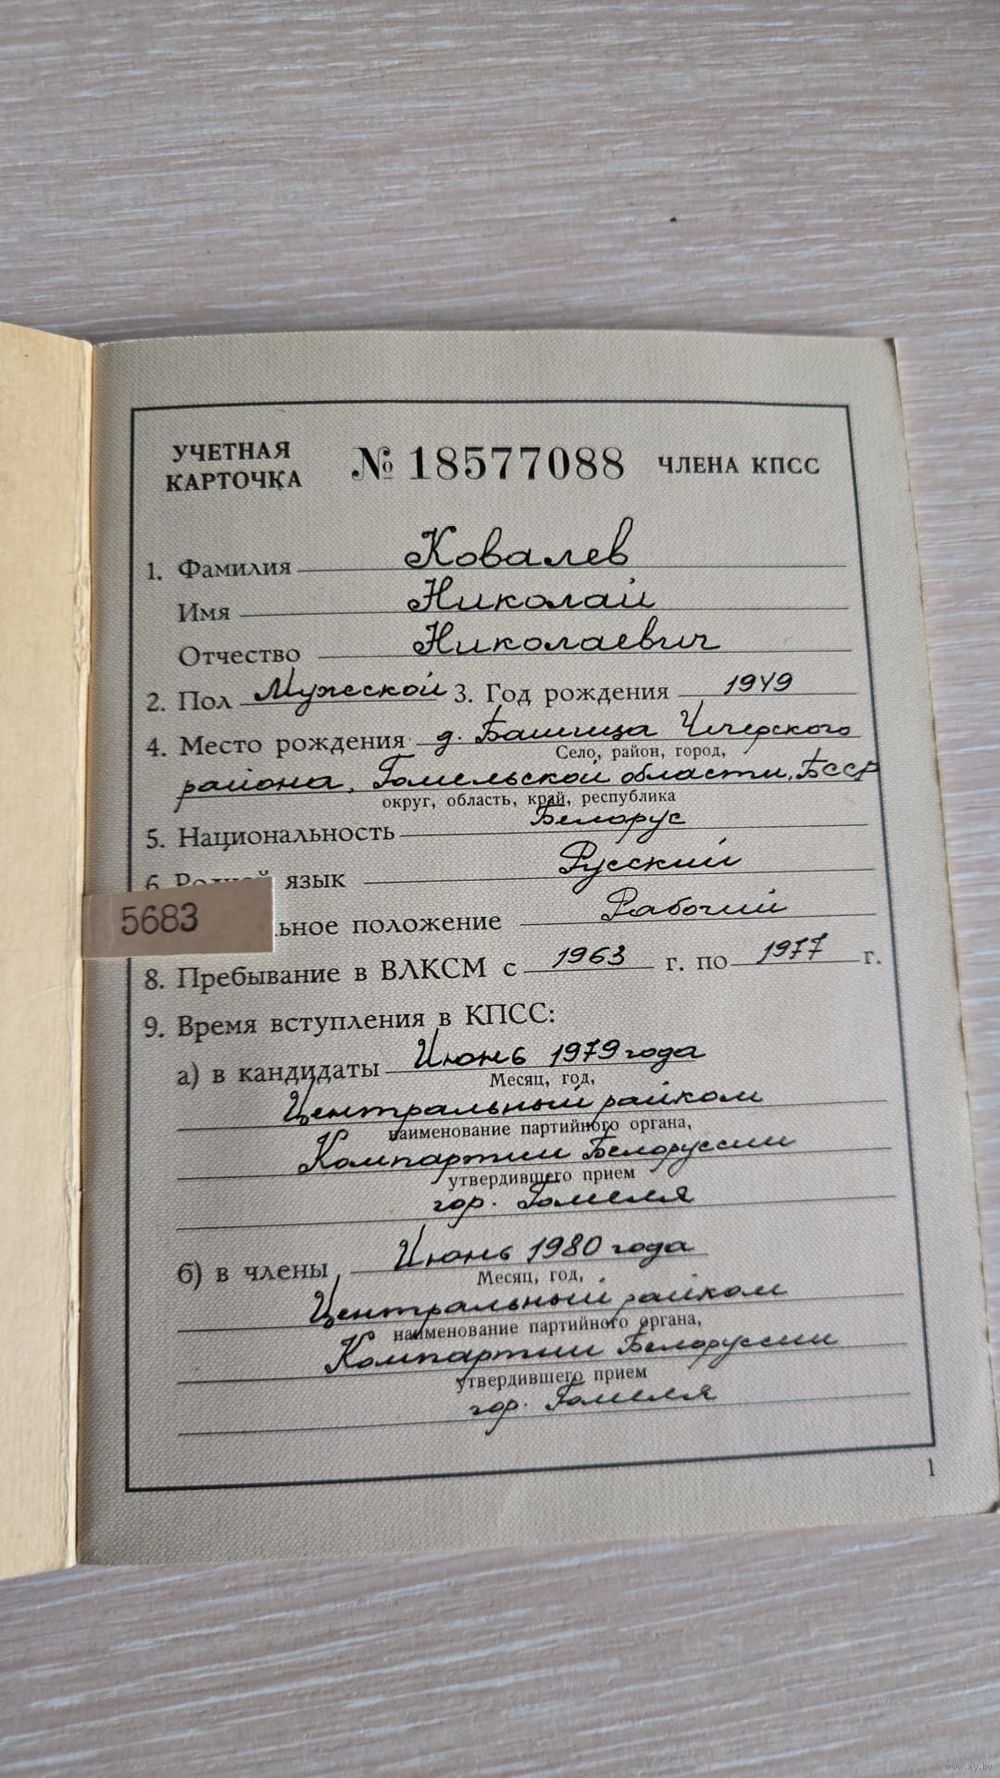 УЧЕТНАЯ КАРТОЧКА № 18577088 ЧЛЕНА КПСС
1. Фамилия Ковалев
Имя Николай
Отчество Николаевич
2. Пол Мужской 3. Год рождения 1949
4. Место рождения д. Башица Чечерского
Село, район, город,
района, Гомельской области, БССР
округ, область, край, республика
5. Национальность Белорус
6. язык Русский
5683 льное положение Рабочий
8. Пребывание в ВЛКСМ с 1963 г. по 1977 г.
9. Время вступления в КПСС:
а) в кандидаты Июнь 1979 года
Месяц, год,
Центральный райком
наименование партийного органа,
Компартии Белоруссии
утвердившего прием
гор. Гомеля
б) в члены Июнь 1980 года
Месяц, год,
Центральный райком
наименование партийного органа,
Компартии Белоруссии
утвердившего прием
гор. Гомеля
1
www.ay.by